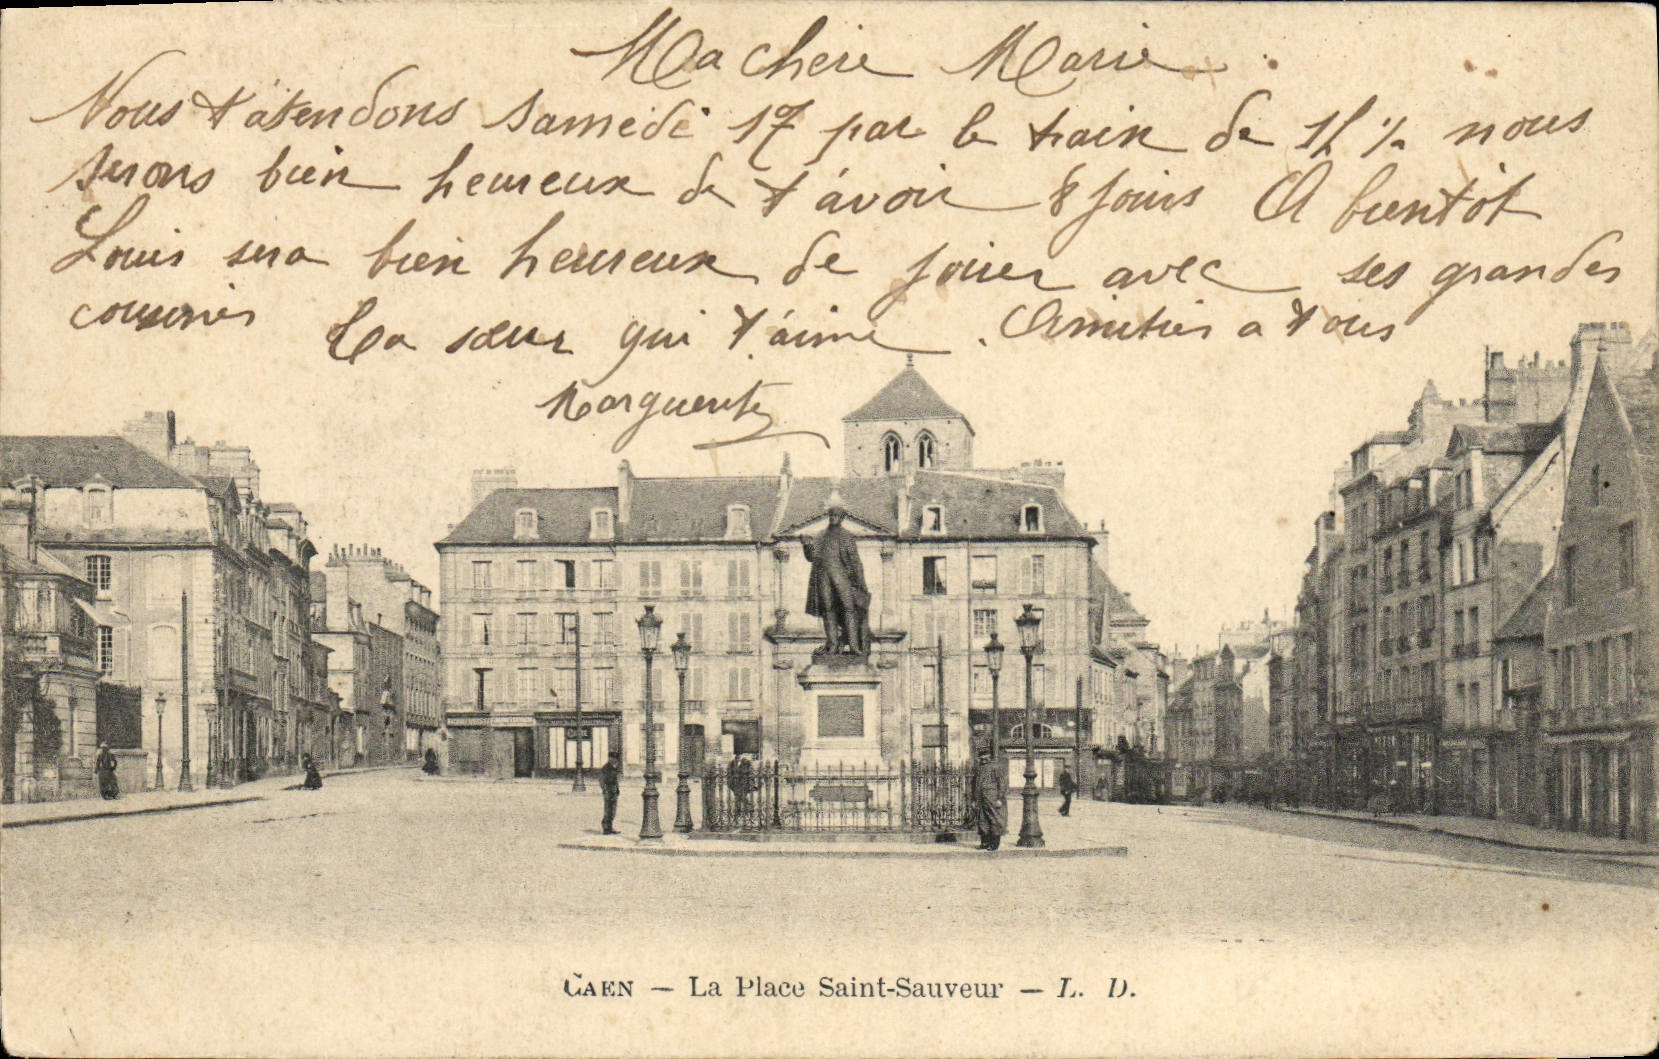 Ma chère Marie
Nous t'attendons Samedi 17 par le train de 1h ½ nous
serons bien heureux de t'avoir 8 jours A bientôt
Louis sera bien heureux de jouer avec ses grandes
cousines Ta sœur qui t'aime. Amitiés a tous
Marguerite
CAEN — La Place Saint-Sauveur — L. D.